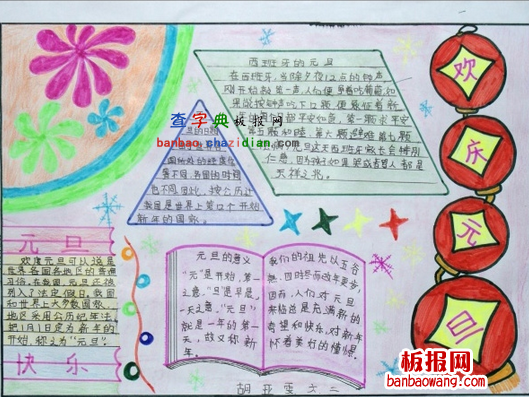 西班牙的元旦
在西班牙,当除夕夜12点的钟声
刚开始敲第一声人们便争着吃葡萄,如
果能按钟声吃下12颗,便象征着新
年的
都平安如意。第一颗求平安
第五颗和睦,第六颗避难第七颗
元旦这天西班牙家长会特别
仁慈,因为孩子如果笑或者骂人都是
不祥之兆。
查字典板报网
banbao.chazidian.com
的日期
国所处的经度位
置不同,各国的时间
也不同,因此,按公历计
我国是世界上第12个开始
新年的国家。
欢
庆
元
旦
元旦
欢度元旦可以说是
世界各国各地区的普遍
习俗,在我国,元旦还被
列入了法定假日,我国
和世界上大多数国家
地区采用公历纪年法,
把1月1日定为新年的
开始,称之为“元旦”。
快乐
元旦的意义
“元”是开始,第一
之意,“旦”是早晨,
一天之意,“元旦”
就是一年的第一
天,故又称新
年。
我们的祖先以五谷
四时而改年更岁,
因而,人们对元旦
来始总是充满新的
希望和快乐,对新年
怀着美好的憧憬。
胡亚雯 六二
板报网
banbaowang.com